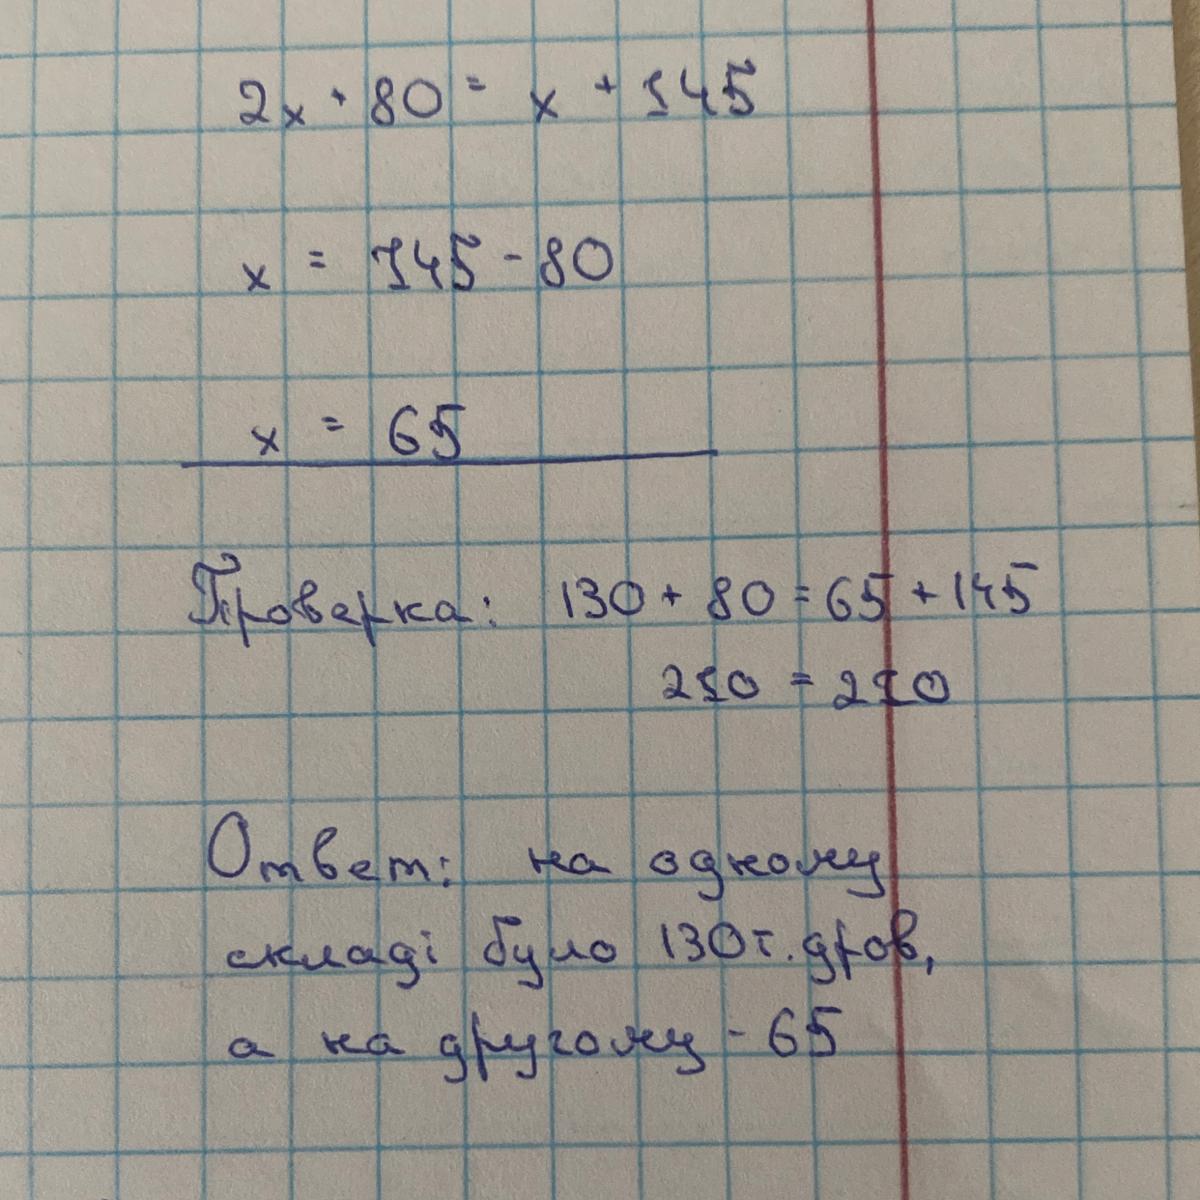 2x + 80 = x + 145
x = 145 - 80
x = 65
Проверка: 130 + 80 = 65 + 145
210 = 210
Ответ: на одному
складі було 130т. дров,
а на другому - 65